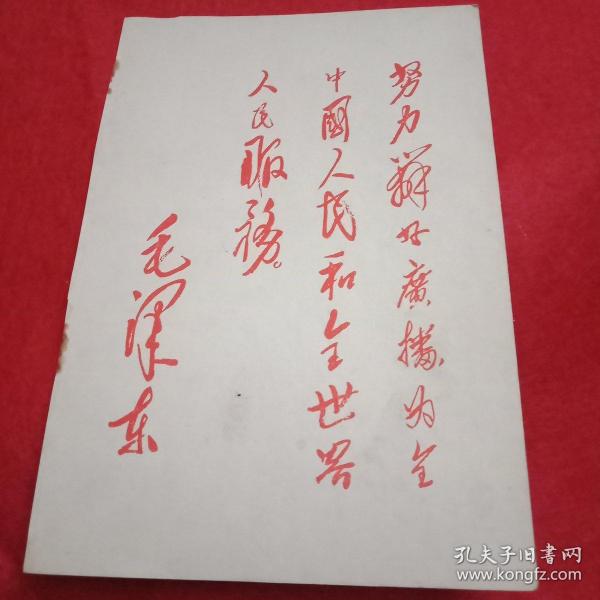 努力辦好廣播,为全
中國人民和全世界
人民服務。
毛泽东
孔夫子旧书网
www.kongfz.com